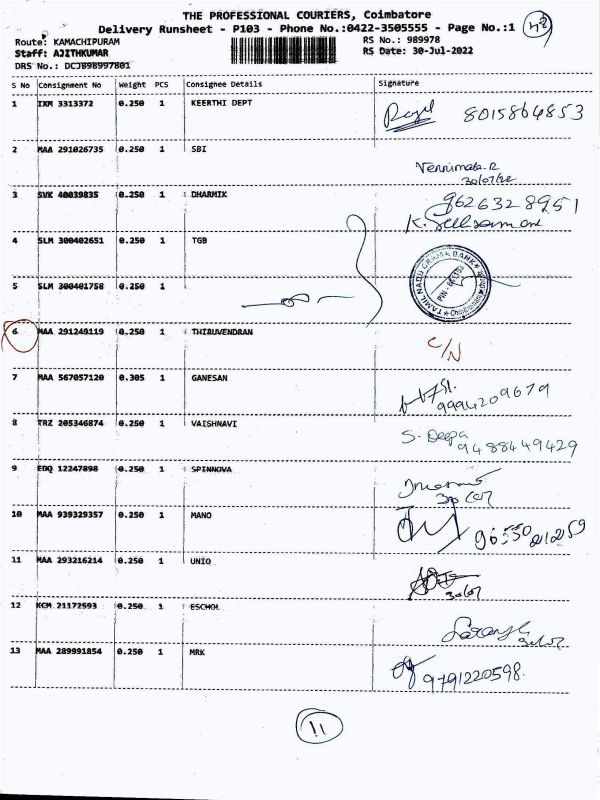 THE PROFESSIONAL COURIERS, Coimbatore
Delivery Runsheet - P103 - Phone No.:0422-3505555 - Page No.:1
Route: KAMACHIPURAM
RS No.: 989978
Staff: AJITHKUMAR
RS Date: 30-Jul-2022
DRS No.: DCJB98997801
S No Consignment No Weight PCS Consignee Details Signature
1 IXM 3313372 0.250 1 KEERTHI DEPT 8015864853
2 MAA 291026735 0.250 1 SBI
30/07/22
3 SVK 40039835 0.250 1 DHARMIK 9626328951
4 SLM 300402651 0.250 1 TGB
TAMIL NADU GRAMA BANK
5 SLM 300401758 0.250 1
6 MAA 291249119 0.250 1 THIRUVENDRAN C/N
7 MAA 567057120 0.305 1 GANESAN
9994209679
8 TRZ 205346874 0.250 1 VAISHNAVI S. Deepa
9488449429
9 EOQ 12247898 0.250 1 SPINNOVA
10 MAA 939329357 0.250 1 MANO
11 MAA 293216214 0.250 1 UNIQ
30/07
12 KCM 21172593 0.250 1 ESCHOL
13 MAA 289991854 0.250 1 MRK
9791220598
11